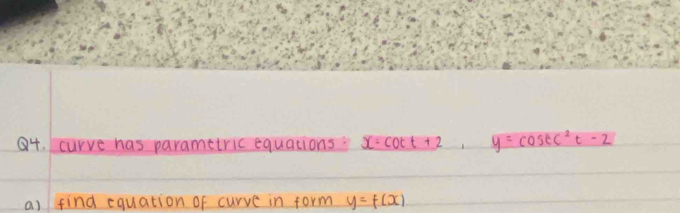 Q4. curve has parametric equations: x = cot t + 2 , y = cosec² t - 2
a) find equation of curve in form y = f(x)